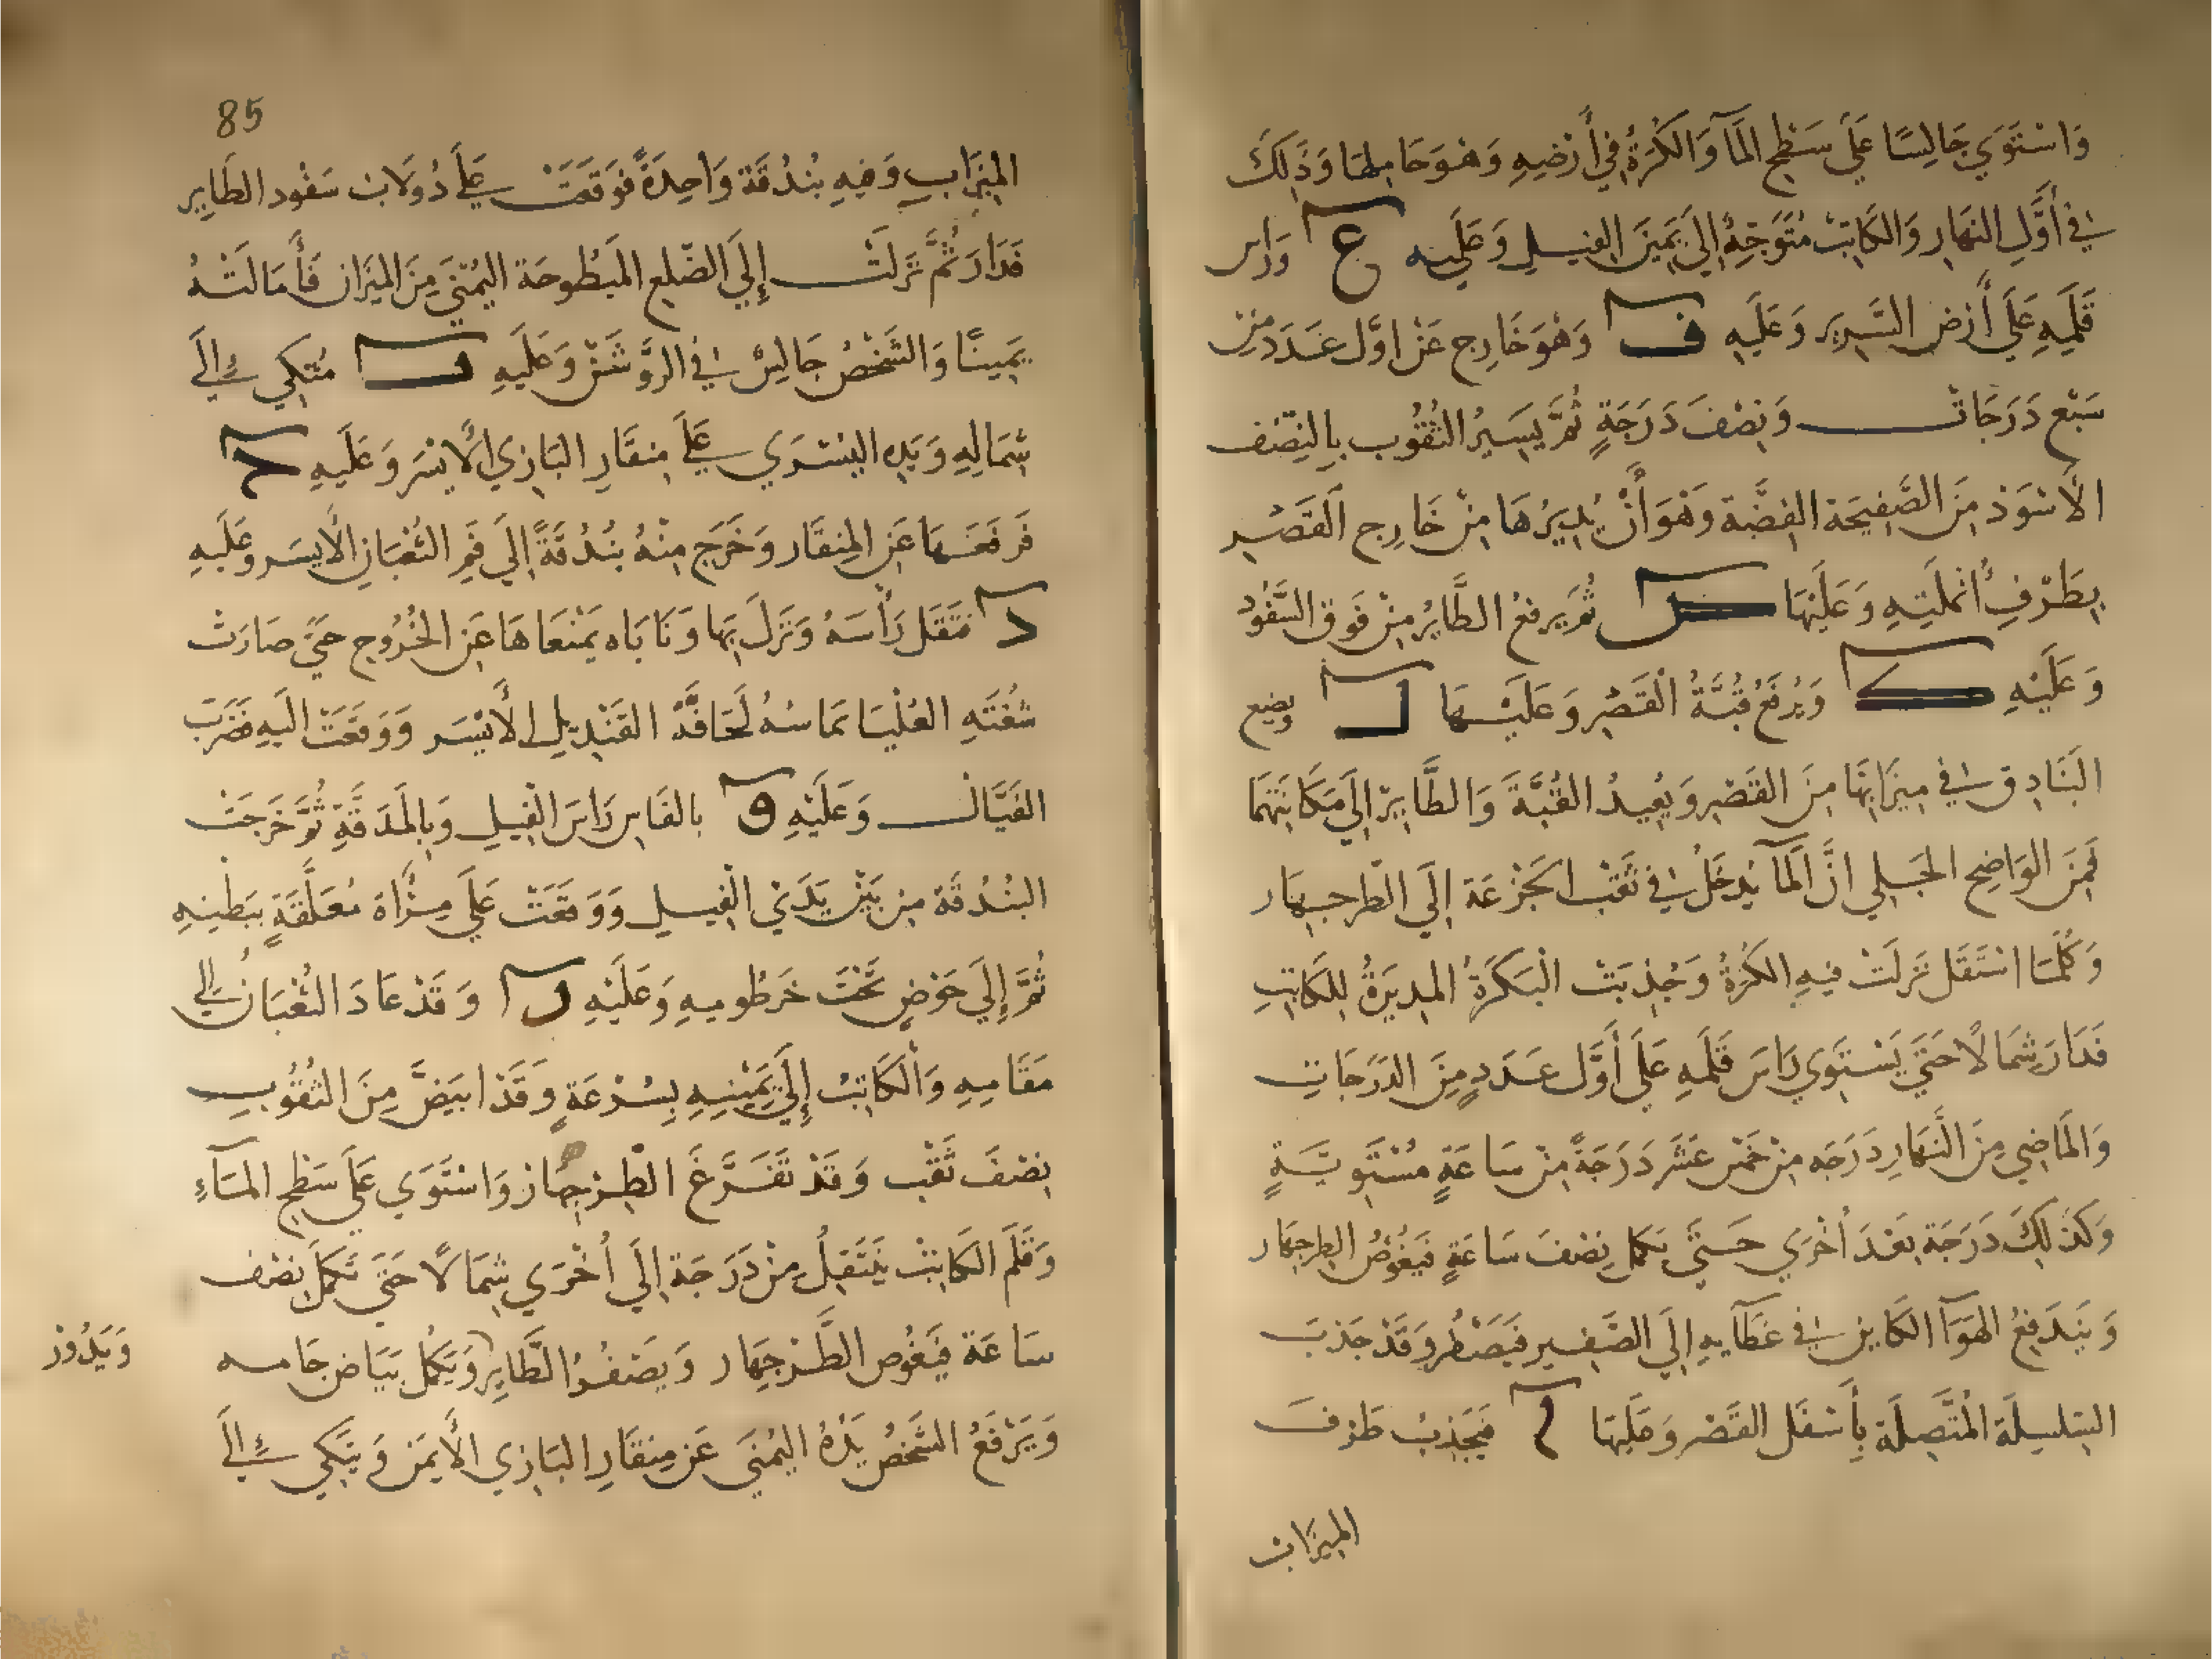 وَاسْتَوَي جَالِسًا عَلَى سَطْحِ المَآ وَالكُرَةُ فِي أَرْضِهِ وَهُوَ حَامِلهَا وَذَلِكَ
في أَوَّلِ النهَارِ وَالكَاتِبْ مُتَوَجِّهٌ إِلَي يَمِينَ الفِيلِ وَعَلَيه ع وَرَاس
قَلَمِهِ عَلَي أَرْضِ السَّرِير وَعَلَيهِ ف وَهُوَ خَارِج عَنْ اوَّل عَدَد مِنْ
سَبْع دَرَجَاتْ وَنِصْفَ دَرَجَةٍ ثُمَّ يسَيِرُ الثُقُوب بِالنِصْف
الأسْوَدْ مِنَ الصَّفِيحَة الفِضَّة وَهُوَ أَنْ يُدِيرُهَا مِنْ خَارِج القَصْر
بِطَرْفِ أُنْمُلَتِهِ وَعَلَيْهَا س ثُمَ يرفعُ الطَّايرُ مِنْ فَوق السَّفُود
وَعَلَيْهِ ك وَيُرفَعُ قُبَّةُ الْقَصْر وَعَلَيْهَا ل ويضع
البَنَادِق في مِيزَابِهَا مِنَ القَصْر وَيُعِيدُ القُبَّةَ وَالطَّايِرْ إِلَي مَكَانَتهمَا
فَمِنَ الوَاضِح الجَلي انَّ المَآ يَدخُلُ في ثقْب الجَزْعَة إِلَي الطرجهَار
وَكُلَّمَا اسْتَقَل نَزلَتْ فيهِ الكُرَةُ وَجُذِبَتْ الْبَكَرَةُ المدِيرَةُ لِلكَاتِبِ
فَدَارَ شِمَالًا حَتَي يَسْتَوي رَاسَ قَلَمِهِ عَلَي أَوَّل عَدَدٍ مِنَ الدَرَجَاتِ
وَالمَاضِي مِنَ النَهَارِ دَرَجَه مِنْ خَمْس عَشَر دَرَجَةً مِنْ سَاعَةٍ مُسْتَوِيَةٍ
وَكَذَلِكَ دَرَجَة بَعْدَ أُخْرَي حَتَّي يَكمل نِصْفَ سَاعَةٍ فَيَغُوصُ الطرجهَار
وَيَندَفِعُ الهَوَآ الكَاين في غطَآيه إِلَي الصَّفِير فَيَصْفُر وَقَدْ جَذبَ
السِلسِلَة المُتَّصِلَة بِأَسْفَل القَصْر وَعَلَيهَا م فَيَجْذِبُ طَرْفَ
الميزاب
85
المِيزَابِ وَفِيهِ بُنْدُقَة وَاحِدَةً فَوَقعَتْ عَلَى دُولَاب سَفُود الطَايِر
فَدَارَ ثُمَّ نَزلَتْ إِلَي الضّلع المَبْطُوحَة اليُمْنَي مِنَ المِيزَان فَأَمَالَتْهُ
يَمِينًا وَالشَخْصُ جَالِسْ في الرَّوشَنْ وَعَلَيهِ مُتكي إلَي
شِمَالِهِ وَيَدِهِ اليُسْرَي عَلَى مِنقَارِ البَازِي الأيْسَر وَعَلَيهِ ح
فَرَفعَهَا عَنِ المِنقَار وَخَرَجَ مِنْهُ بُنْدُقةً إِلَي فَمِ الثعْبَانِ الأيسَر وَعَلَيهِ
د فَثقل رَأْسَهُ وَنَزلَ بِهَا وَنَابَاه يَمْنَعَاهَا عَنِ الخُرُوج حَتيَ صَارَتْ
شَفَتَهِ العُليَا مُمَاسهُ لَحَافَّة القَنْدِيلِ الأيْسَر وَوَقعَتْ إلَيهِ فَضَرَبَ
الفَيَّال وَعَلَيْهِ ف بالفَاس رَاسَ الفِيلِ وَبِالمَدَقَّةِ ثُمَّ خَرَجَتْ
البُنْدُقَة مِن بَيْنْ يَدَيْ الْفِيلِ وَوَقعَتْ عَلَي مِرْاَة مُعَلَّقَةٍ بِبَطنِهِ
ثُمَّ إِلَي حَوْضٍ تَحْتَ خَرطُومِهِ وَعَلَيْهِ وَقَدْ عَادَ الثُعْبَانُ إلَي
مَقَامِهِ وَالْكَاتِبُ إِلَي يَمِينِهِ بِسُرْعَةٍ وَقَدْ ابيَضَّ مِنَ الثُقُوبِ
نِصْفَ ثُقْب وَقَدْ تَفَرَّغَ الطِرْجِهَارْ وَاسْتَوَي عَلَي سَطْحِ المَاءِ
وَقَلَمَ الكَاتِبْ يَنتَقِلُ مِنْ دَرَجَة إِلَي أُخْرَي شِمَالًا حَتيَ تَكْمُلَ نِصْف
سَاعَة فَيَغُوص الطَرْجِهَار وَيصَفرُ الطَّايِرِ وَيَكمُل بَيَاض جَامه
وَيَدُورْ
وَيَرْفَعُ الشَخصُ يَدَهُ اليُمنَي عَن مِنقَارِ البَازِي الأيمَن وَيَتكي إلَي